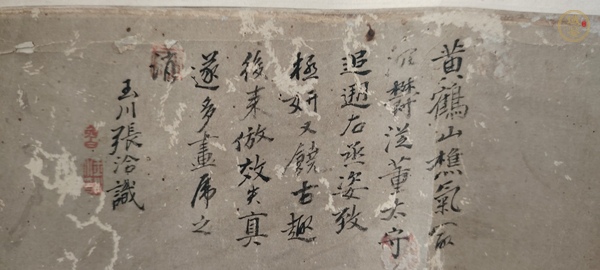 黄鶴山樵氣家
淮樊從董太守
追遡右丞姿致
極妍又饒古趣
後来倣效失真
遂多畫虎之
誚
玉川張洽識